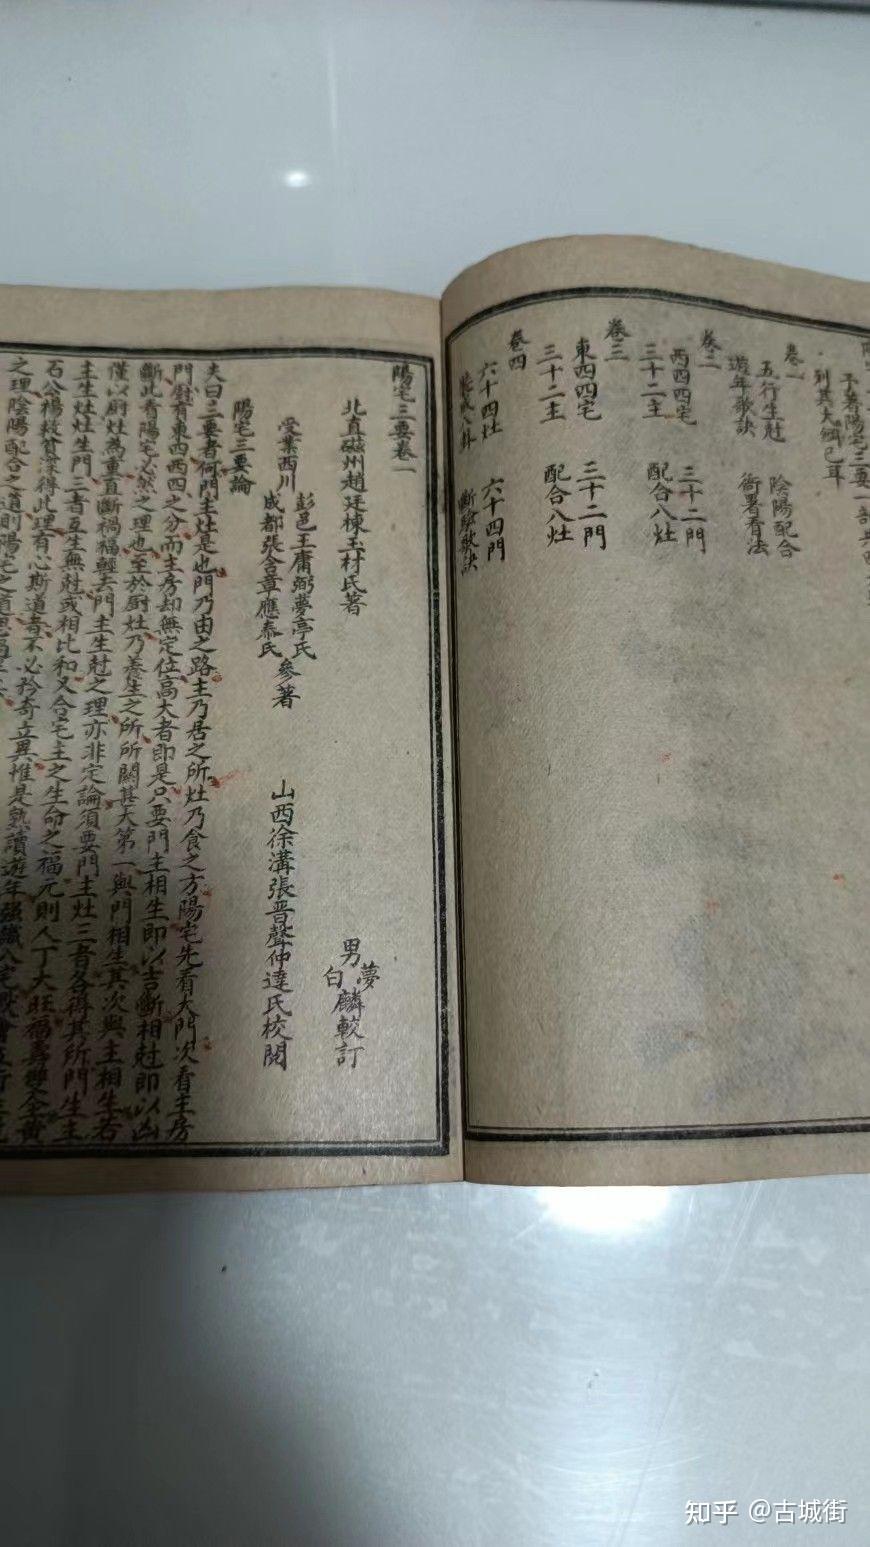 予著陽宅三要一部
列其大綱已耳
卷一
五行生尅 陰陽配合
遊年歌訣 衙署看法
卷二
西四四宅 三十二門
三十二主 配合八灶
卷三
東西四宅 三十二門
三十二主 配合八灶
卷四
六十四灶 六十四門
八卦 斷驗歌訣
陽宅三要卷一
北直磁州趙廷棟玉材氏著 男夢白麟較訂
受業西川彭邑王庸弼夢亭氏成都張含章應泰氏參著 山西徐溝張晉聲仲達氏校閱
陽宅三要論
夫曰三要者何門主灶是也門乃由之路主乃居之所灶乃食之方陽宅先看大門次看主房
門廚有東西四之分而主房却無定位高大者即是只要門主相生即以吉斷相尅即以凶
斷此看陽宅必然之理也至於厨灶乃養生之所所關甚大第一與門相生其次與主相生若
僅以厨灶為重直斷禍福輕去門主生尅之理亦非定論須要門主灶三者各得其所門生主
主生灶灶生門三者互生無尅或相比和又合宅主之生命之福元則人丁大旺福壽雙全黃
石公楊救貧深得此理有心斯道者不必矜奇立異惟是熟讀遊年
之理陰陽配合之道則陽宅之道
知乎 @古城街